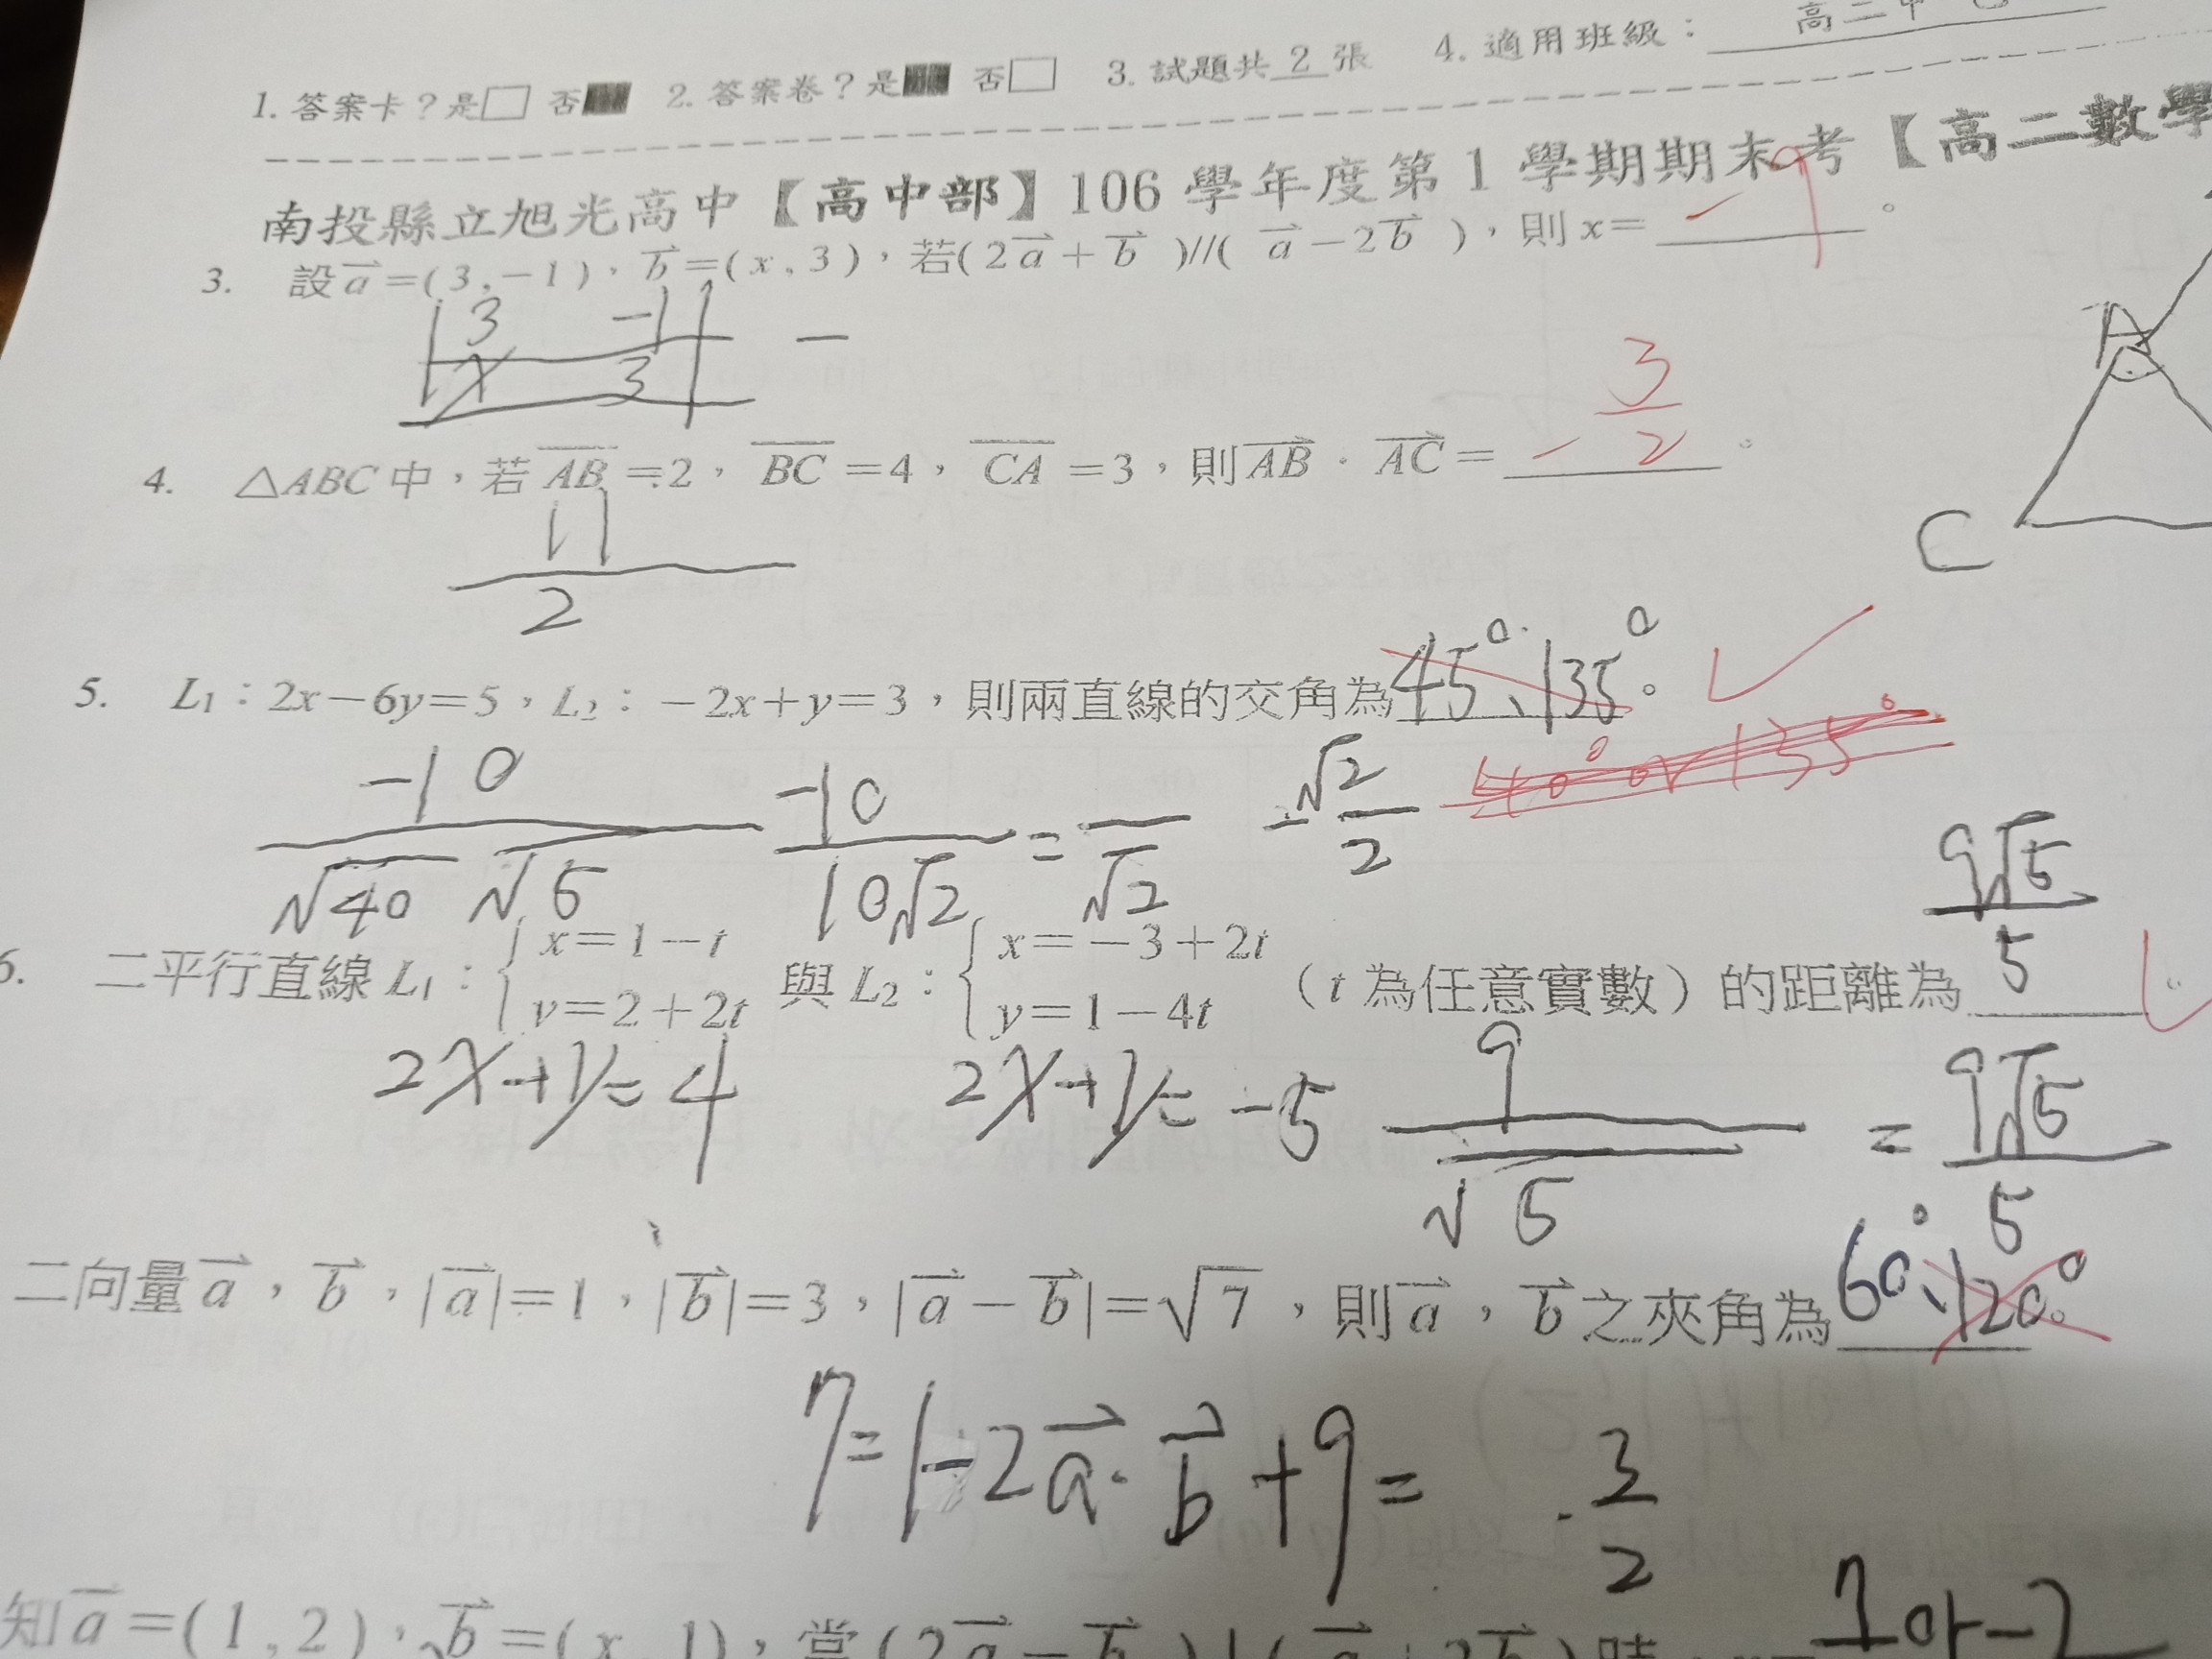 1. 答案卡？是□ 否■ 2. 答案卷？是■ 否□ 3. 試題共 2 張 4. 適用班級：
南投縣立旭光高中【高中部】106 學年度第 1 學期期末考【高二數學
3. 設 a⃗ =(3,-1)，b⃗ =(x,3)，若(2a⃗ + b⃗ )//( a⃗ -2b⃗ )，則 x= -9 。
3 -1
x 3
-
A
C
4. △ABC 中，若 AB =2， BC =4， CA =3，則 AB · AC = -3/2 。
11/2
5. L₁：2x-6y=5，L₂：-2x+y=3，則兩直線的交角為 45°、135° 。✓
40° or 135°
-10/√40 √5 -10/10√2 = -/√2 -√2/2
6. 二平行直線 L₁：{x=1-t y=2+2t 與 L₂：{x=-3+2t y=1-4t （t 為任意實數）的距離為 9√5/5 。
2x+y=4 2x+y=-5 9/√5 = 9√5/5
二向量 a⃗，b⃗，|a⃗|=1，|b⃗|=3，|a⃗ - b⃗|=√7，則 a⃗，b⃗ 之夾角為 60°、120° 。
7=1-2a⃗·b⃗+9= 3/2
知 a⃗ =(1,2)，b⃗ =(x,1)，當(2a⃗ - b⃗